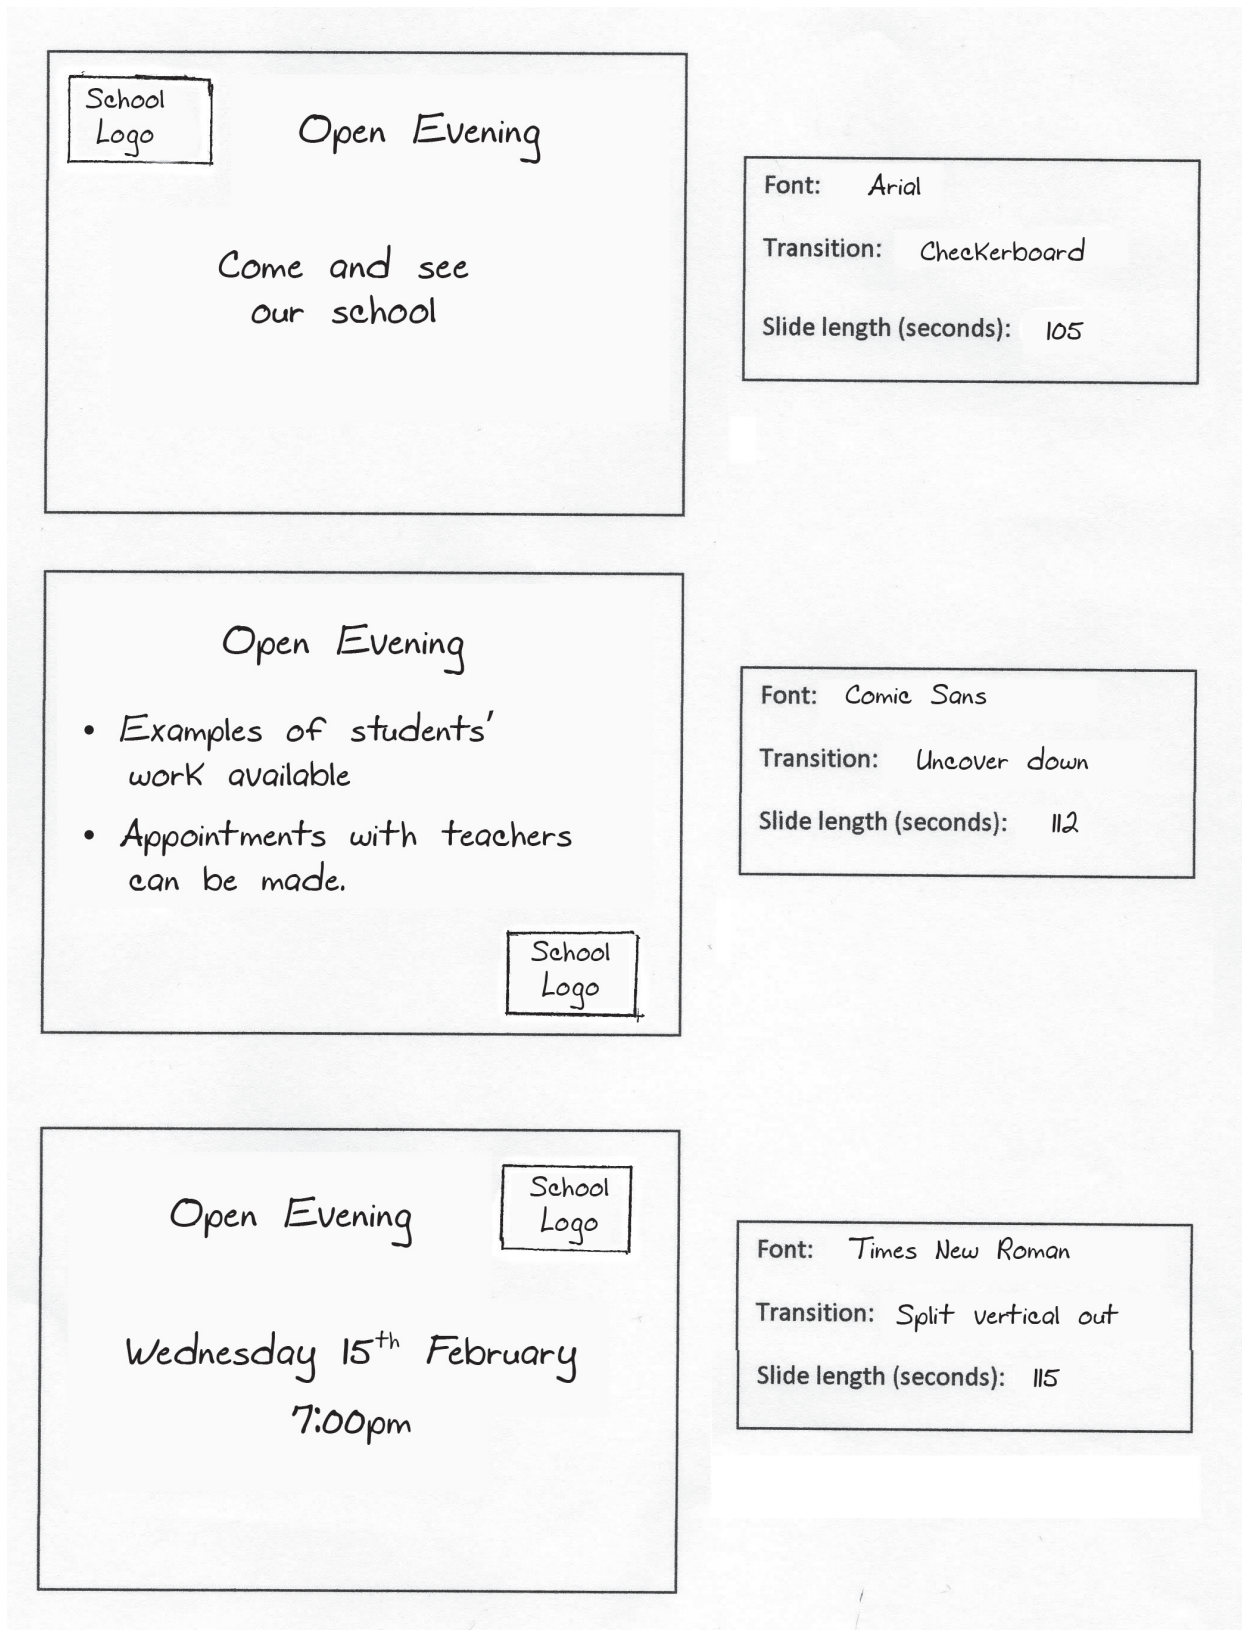 School
Logo
Open Evening
Come and see
our school
Font: Arial
Transition: Checkerboard
Slide length (seconds): 105
Open Evening
• Examples of students'
work available
• Appointments with teachers
can be made.
School
Logo
Font: Comic Sans
Transition: Uncover down
Slide length (seconds): 112
Open Evening
School
Logo
Wednesday 15th February
7:00pm
Font: Times New Roman
Transition: Split vertical out
Slide length (seconds): 115